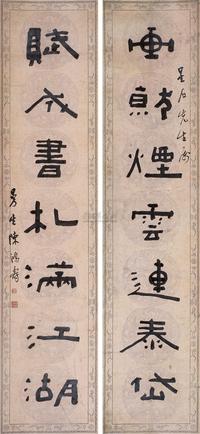 畫就煙雲連泰岱
星石先生屬
賦成書札滿江湖
曼生陳鴻壽